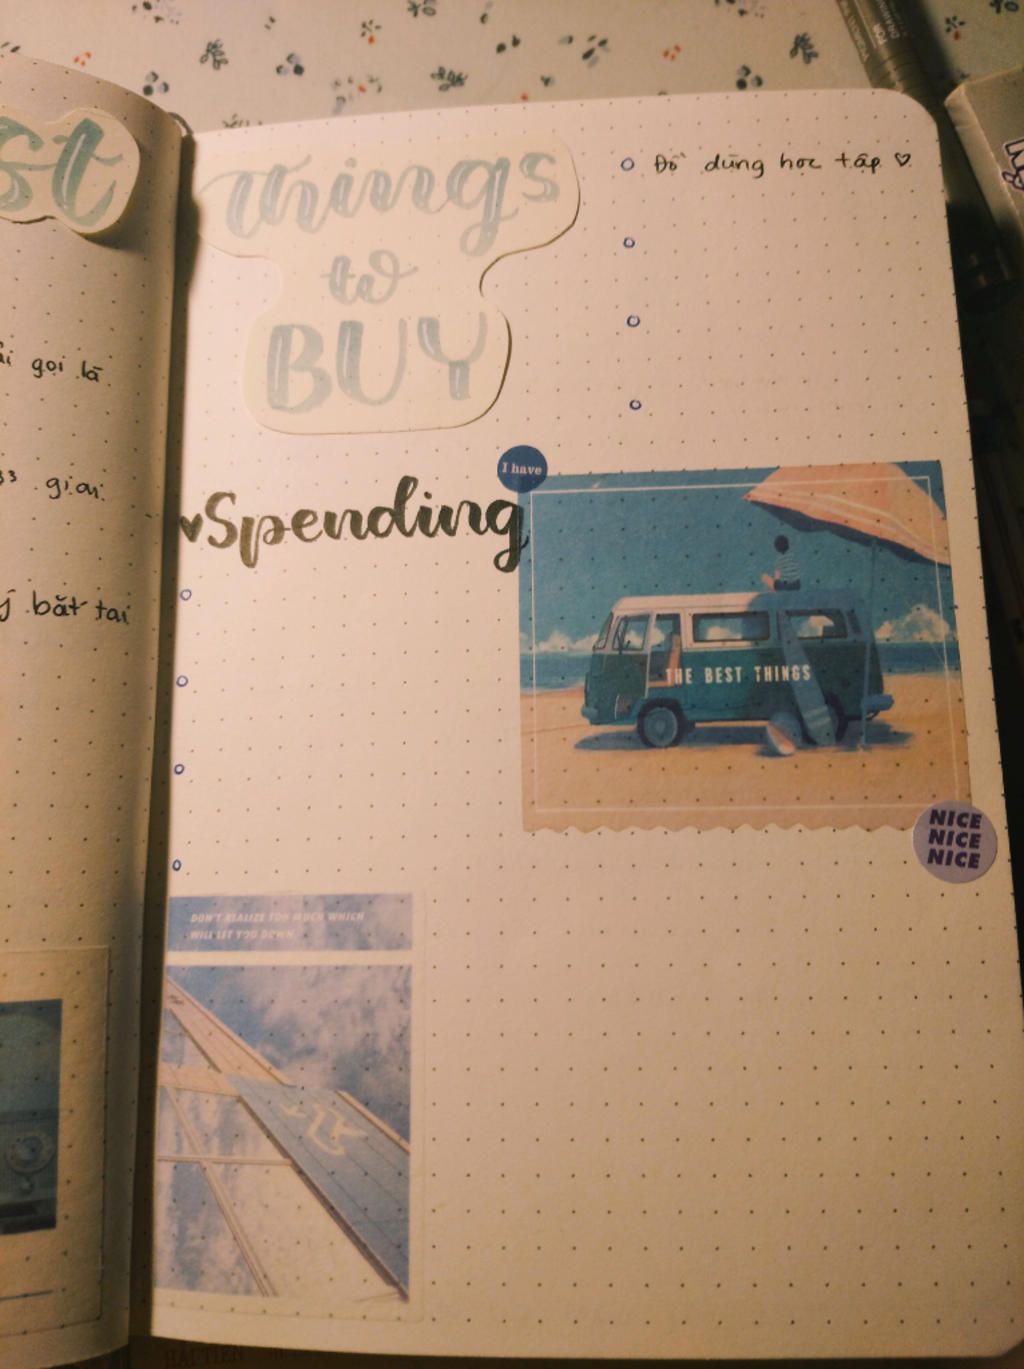 st
gọi là
giai
bắt tai
things
to
BUY
Đồ dùng học tập ♡
♥Spending
I have
THE BEST THINGS
NICE
NICE
NICE
DON'T REALIZE TOO MUCH WHICH
WILL LET YOU DOWN
FOR